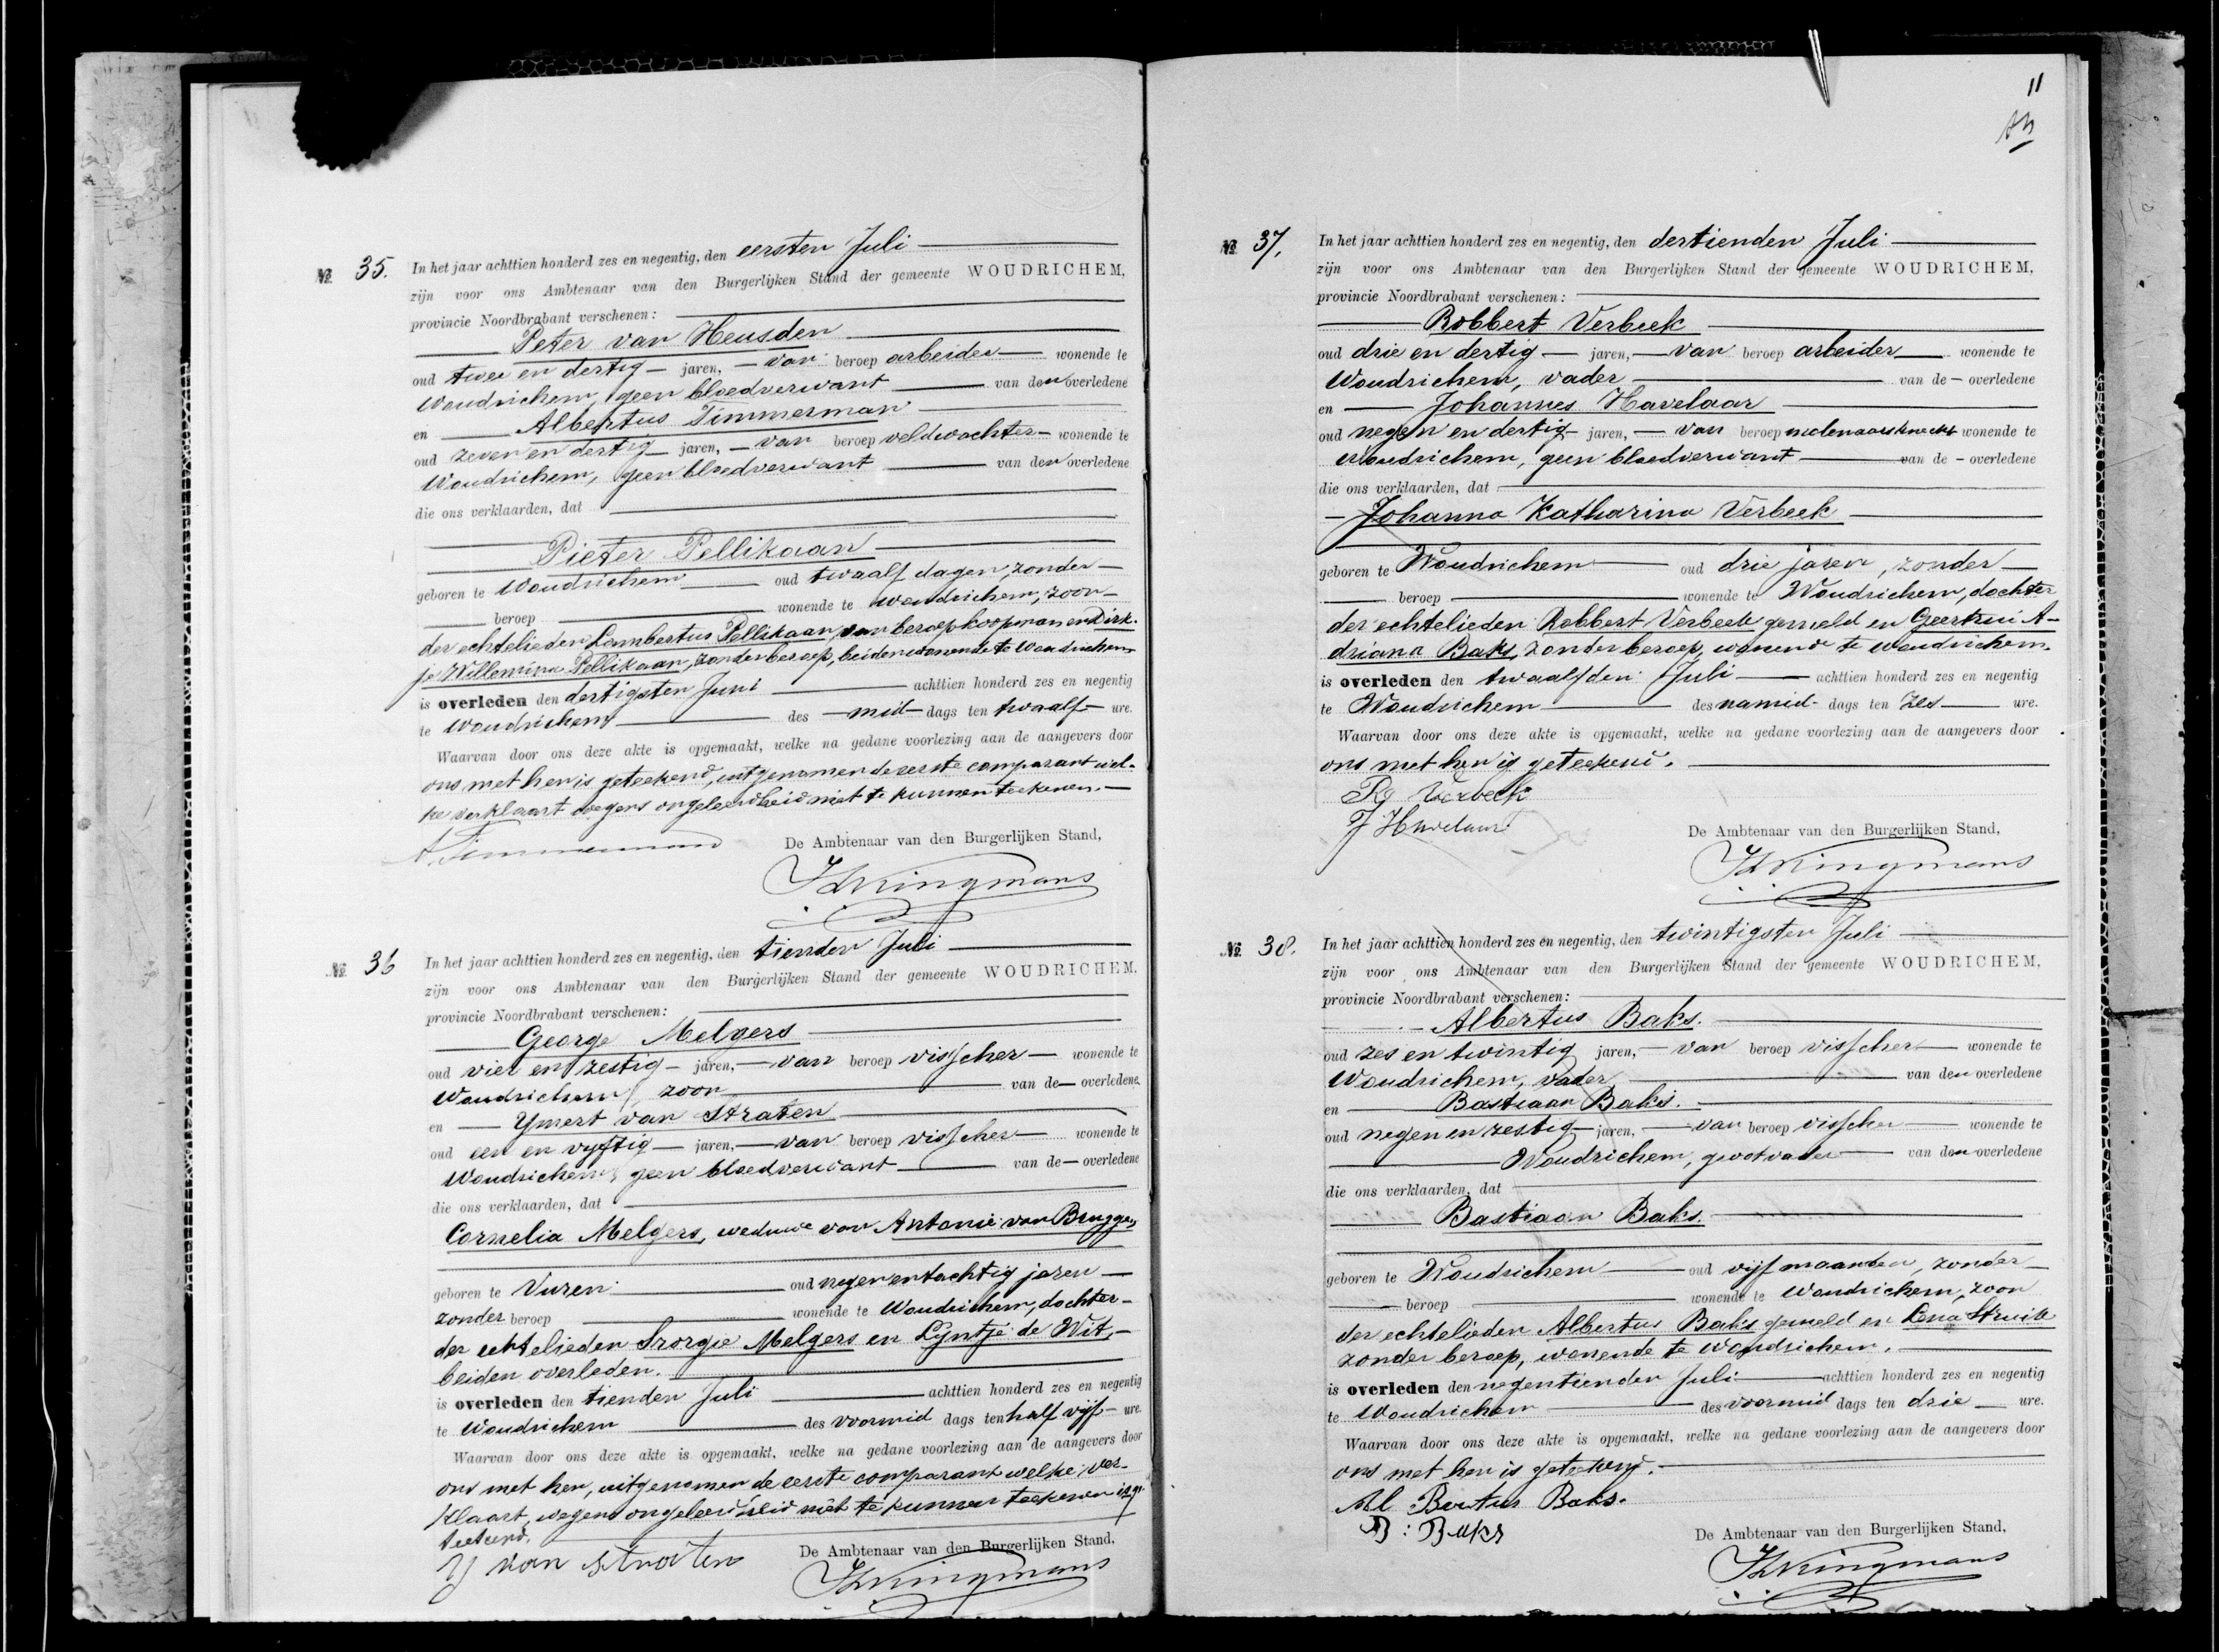 № 35. In het jaar achttien honderd zes en negentig, den eersten Juli
zijn voor ons Ambtenaar van den Burgerlijken Stand der gemeente WOUDRICHEM,
provincie Noordbrabant verschenen:
Peter van Heusden
oud twee en dertig jaren, van beroep arbeider wonende te
Woudrichem, geen bloedverwant van den overledene
en Albertus Timmerman
oud zeven en dertig jaren, van beroep veldwachter wonende te
Woudrichem, geen bloedverwant van den overledene
die ons verklaarden, dat
Pieter Pellikaan
geboren te Woudrichem oud twaalf dagen, zonder
beroep wonende te Woudrichem, zoon
der echtelieden Lambertus Pellikaan, van beroep koopman en Dirk-
je Willemina Pellikaan, zonder beroep, beiden wonende te Woudrichem
is overleden den dertigsten Juni achttien honderd zes en negentig
te Woudrichem des mid dags ten twaalf ure.
Waarvan door ons deze akte is opgemaakt, welke na gedane voorlezing aan de aangevers door
ons met hen is geteekend, uitgenomen de eerste comparant wel-
ke verklaart wegens ongeleerdheid niet te kunnen teekenen.
A Timmerman
De Ambtenaar van den Burgerlijken Stand,
Kingmans
№ 36 In het jaar achttien honderd zes en negentig, den tienden Juli
zijn voor ons Ambtenaar van den Burgerlijken Stand der gemeente WOUDRICHEM,
provincie Noordbrabant verschenen:
George Melgers
oud vier en zestig jaren, van beroep visscher wonende te
Woudrichem, zoon van de overledene
en Ymert van Straten
oud een en vyftig jaren, van beroep visscher wonende te
Woudrichem, geen bloedverwant van de overledene
die ons verklaarden, dat
Cornelia Melgers, weduwe van Antonie van Brugge,
geboren te Vuren oud negenentachtig jaren
zonder beroep wonende te Woudrichem, dochter
der echtelieden Srorgie Melgers en Lijntje de Wit,
beiden overleden.
is overleden den tienden Juli achttien honderd zes en negentig
te Woudrichem des voormid dags ten half vijf ure.
Waarvan door ons deze akte is opgemaakt, welke na gedane voorlezing aan de aangevers door
ons met hen, uitgenomen de eerste comparant welke ver-
klaart, wegens ongeleerdheid niet te kunnen teekenen is ge-
teekend.
Y van Straten
De Ambtenaar van den Burgerlijken Stand,
Kingmans
11
№ 37. In het jaar achttien honderd zes en negentig, den dertienden Juli
zijn voor ons Ambtenaar van den Burgerlijken Stand der gemeente WOUDRICHEM,
provincie Noordbrabant verschenen:
Robbert Verbeek
oud drie en dertig jaren, van beroep arbeider wonende te
Woudrichem, vader van de overledene
en Johannes Havelaar
oud negen en dertig jaren, van beroep molenaarsknecht wonende te
Woudrichem, geen bloedverwant van de overledene
die ons verklaarden, dat
Johanna Katharina Verbeek
geboren te Woudrichem oud drie jaren, zonder
beroep wonende te Woudrichem, dochter
der echtelieden Robbert Verbeek gemeld en Geertrui A-
driana Baks, zonder beroep, wonende te Woudrichem.
is overleden den twaalfden Juli achttien honderd zes en negentig
te Woudrichem des namid dags ten zes ure.
Waarvan door ons deze akte is opgemaakt, welke na gedane voorlezing aan de aangevers door
ons met hen is geteekend.
R Verbeek
J Havelaar
De Ambtenaar van den Burgerlijken Stand,
Kingmans
№ 38. In het jaar achttien honderd zes en negentig, den twintigsten Juli
zijn voor ons Ambtenaar van den Burgerlijken Stand der gemeente WOUDRICHEM,
provincie Noordbrabant verschenen:
Albertus Baks.
oud zes en twintig jaren, van beroep visscher wonende te
Woudrichem, vader van den overledene
en Bastiaan Baks.
oud negen en zestig jaren, van beroep visscher wonende te
Woudrichem, grootvader van den overledene
die ons verklaarden, dat
Bastiaan Baks.
geboren te Woudrichem oud vijf maanden, zonder
beroep wonende te Woudrichem, zoon
der echtelieden Albertus Baks gemeld en Lena Struik
zonder beroep, wonende te Woudrichem.
is overleden den negentienden Juli achttien honderd zes en negentig
te Woudrichem des voormid dags ten drie ure.
Waarvan door ons deze akte is opgemaakt, welke na gedane voorlezing aan de aangevers door
ons met hen is geteekend.
Al Bertus Baks.
B: Baks
De Ambtenaar van den Burgerlijken Stand,
Kingmans